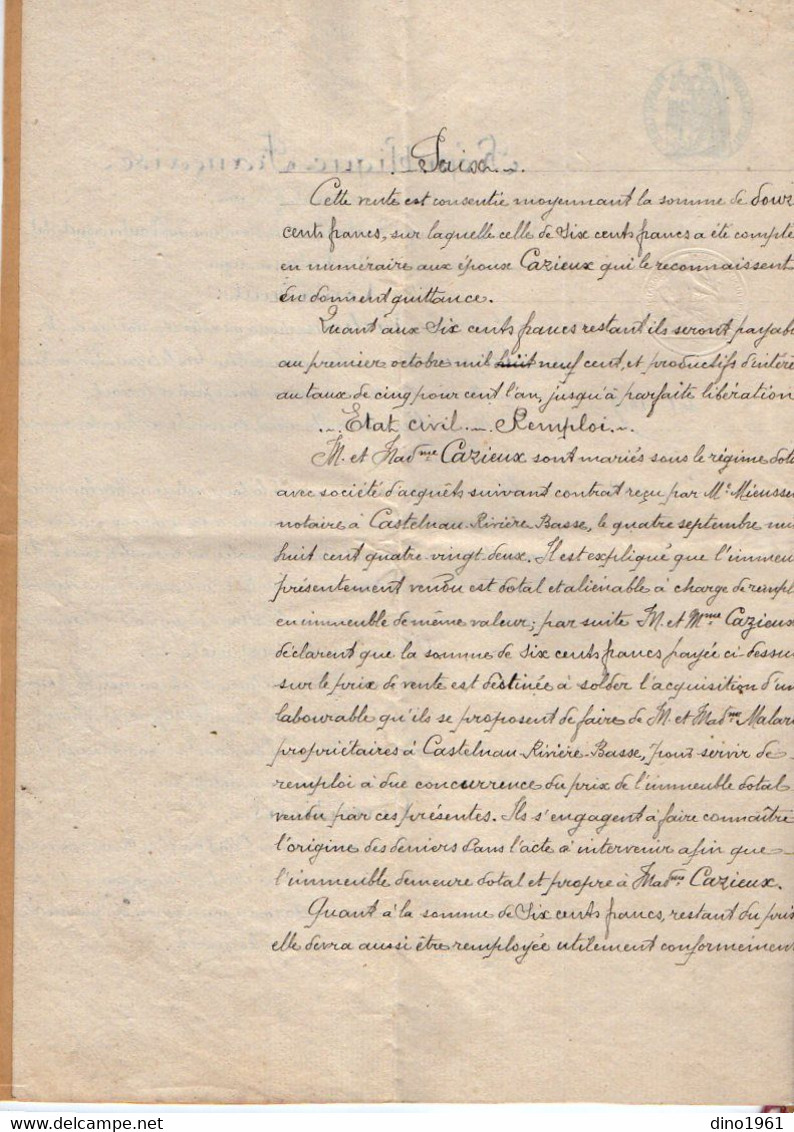 Prix
Cette vente est consentie moyennant la somme de douz
cents francs, sur laquelle celle de Six cents francs a été compté
en numéraire aux époux Cazieux qui le reconnaissent
En donnent quittance.
Quant aux Six cents francs restant ils seront payab
au premier octobre mil huit neuf cent, et productifs d'intérê
au taux de cinq pour cent l'an, jusqu'à parfaite libération
Etat civil. Remploi.
M. et Mad.me Cazieux sont mariés sous le régime dota
avec société d'acquêts suivant contrat reçu par Me Mieusse
notaire à Castelnau-Rivière-Basse, le quatre septembre mil
huit cent quatre-vingt-deux. Il est expliqué que l'immeu
présentement vendu est dotal et aliénable à charge de rempl
en immeuble de même valeur; par suite M. et Mme Cazieux
déclarent que la somme de Six cents francs payée ci-dessu
sur le prix de vente est destinée à solder l'acquisition d'un
labourable qu'ils se proposent de faire de M. et Mad.me Malar
propriétaires à Castelnau-Rivière-Basse, pour servir de
remploi à due concurrence du prix de l'immeuble dotal
vendu par ces présentes. Ils s'engagent à faire connaître
l'origine des deniers dans l'acte à intervenir afin que
l'immeuble demeure dotal et propre à Mad.me Cazieux.
Quant à la somme de Six cents francs, restant du prix
elle devra aussi être remployée utilement conformément
dino1961